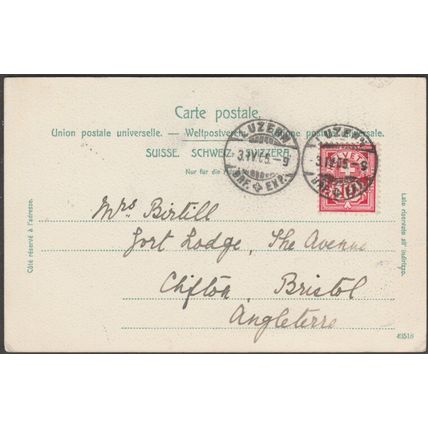 Carte postale.
Union postale universelle. — Weltpostverein. — Unione postale universale.
SUISSE. SCHWEIZ. SVIZZERA.
Nur für die
LUZERN
3.IV.05.-9
BRF. EXP.
LUZERN
3.IV.05.-9
BRF. EXP.
Mrs Birtill
Fort Lodge, The Avenue
Clifton, Bristol
Angleterre
Côté réservé à l'adresse.
Lato riservato all' indirizzo.